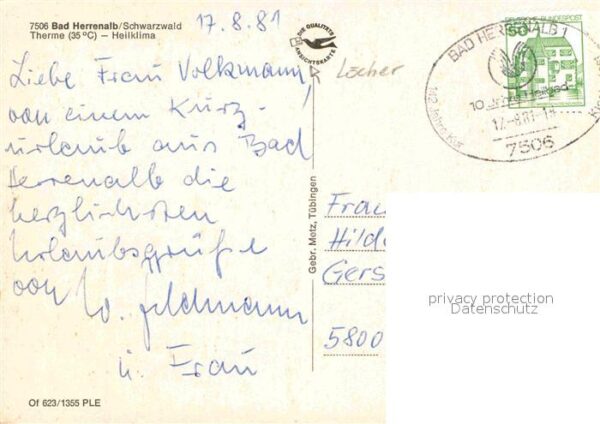 7506 Bad Herrenalb/Schwarzwald
Therme (35 °C) — Heilklima
17.8.81
DIE QUALITÄTS
ANSICHTSKARTE
Locher
Liebe Frau Volkmann,
von einem Kurz-
urlaub aus Bad
Herrenalb die
herzlichsten
Urlaubsgrüße
von W. Feldmann
u. Frau
Gebr. Metz, Tübingen
DEUTSCHE BUNDESPOST
50
BAD HERRENALB 1
10 Jahre
17.-8.81-18
7506
Frau
Hilde
Gers
5800
privacy protection
Datenschutz
Of 623/1355 PLE